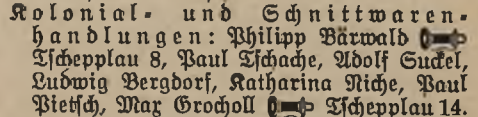 Kolonial- und Schnittwaren-
handlungen: Philipp Bärwald
Tschepplau 8, Paul Tschache, Adolf Suckel,
Ludwig Bergdorf, Katharina Niche, Paul
Pietsch, Max Grocholl Tschepplau 14.